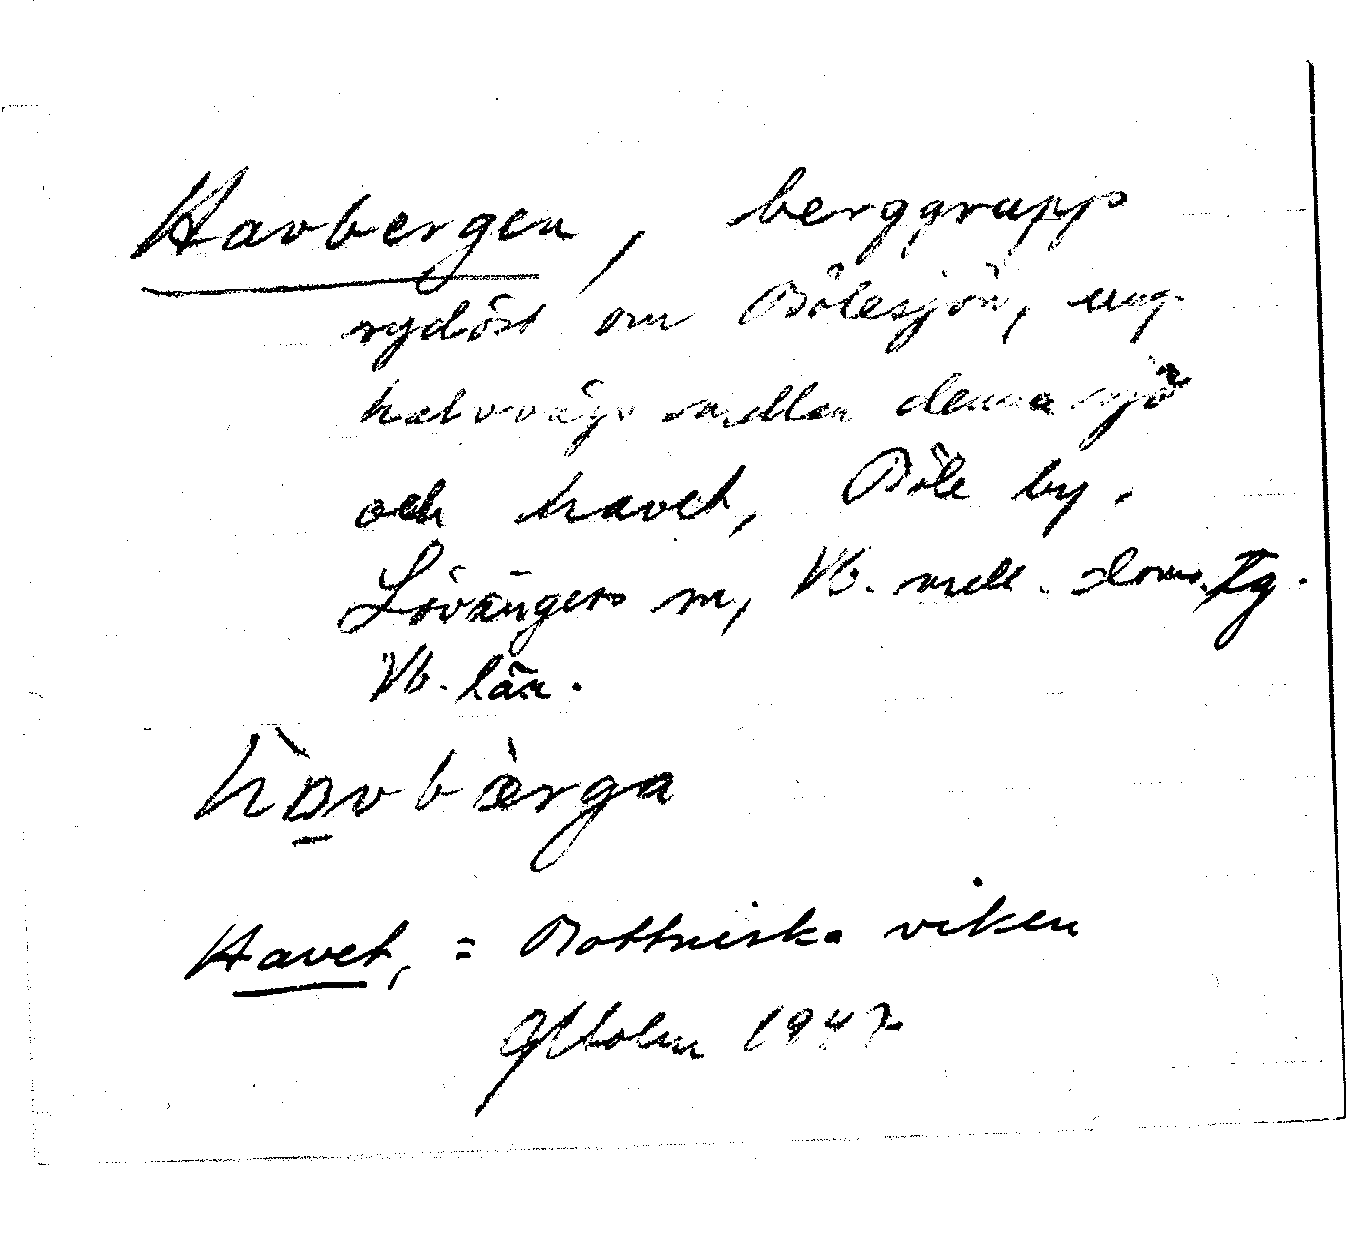 Havbergen, berggrupp
sydöst om Bölesjön, ung.
halvvägs mellan denna sjö
och havet, Böle by.
Lövångers sn, Vb. mell. doms. Tg.
Vb. län.
Havet, = Bottniska viken
Holm 1947